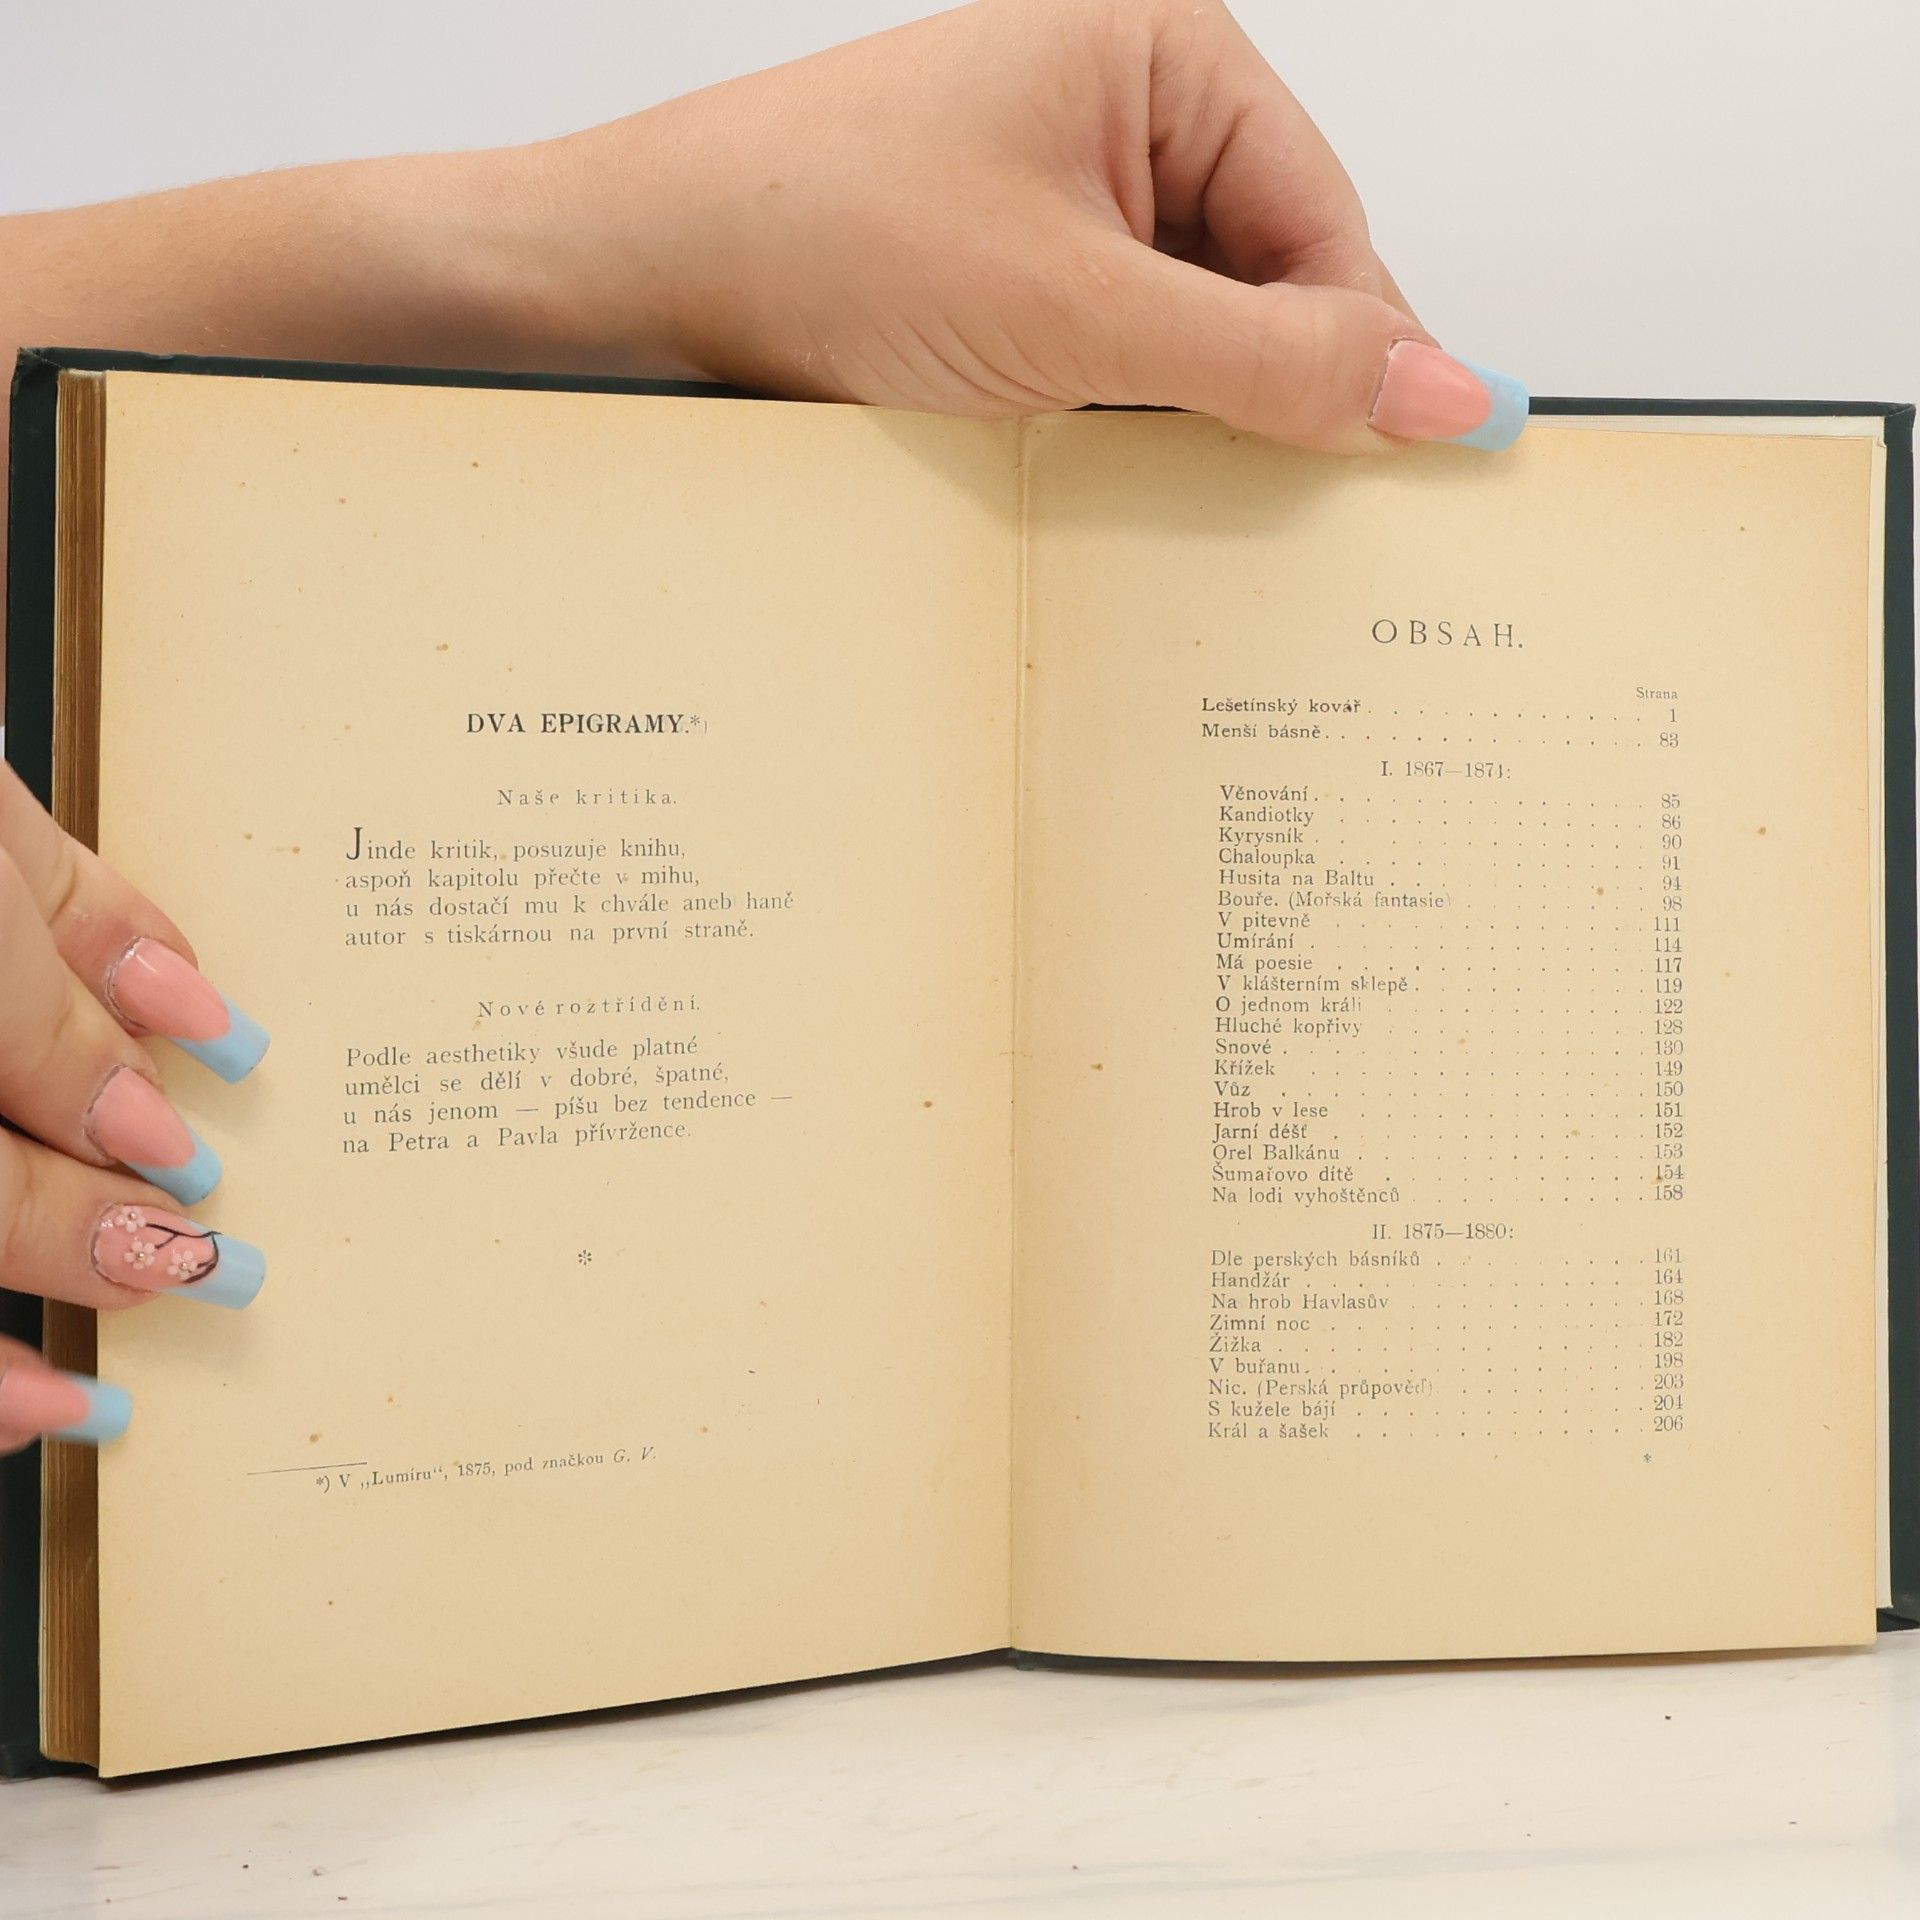 DVA EPIGRAMY.*)
Naše kritika.
Jinde kritik, posuzuje knihu,
aspoň kapitolu přečte v mihu,
u nás dostačí mu k chvále aneb haně
autor s tiskárnou na první straně.
Nové roztřídění.
Podle aesthetiky všude platné
umělci se dělí v dobré, špatné,
u nás jenom — píšu bez tendence —
na Petra a Pavla přívržence.
*
*) V „Lumíru“, 1875, pod značkou G. V.
OBSAH.
Strana
Lešetínský kovář . . . . . . . . . . . 1
Menší básně . . . . . . . . . . . . . 83
I. 1867—1874:
Věnování . . . . . . . . . . . . . 85
Kandiotky . . . . . . . . . . . . 86
Kyrysník . . . . . . . . . . . . . 90
Chaloupka . . . . . . . . . . . . 91
Husita na Baltu . . . . . . . . . . 94
Bouře. (Mořská fantasie) . . . . . . . 98
V pitevně . . . . . . . . . . . . 111
Umírání . . . . . . . . . . . . . 114
Má poesie . . . . . . . . . . . . 117
V klášterním sklepě . . . . . . . . . 119
O jednom králi . . . . . . . . . . 122
Hluché kopřivy . . . . . . . . . . 128
Snové . . . . . . . . . . . . . . 130
Křížek . . . . . . . . . . . . . 149
Vůz . . . . . . . . . . . . . . 150
Hrob v lese . . . . . . . . . . . 151
Jarní déšť . . . . . . . . . . . . 152
Orel Balkánu . . . . . . . . . . . 153
Šumařovo dítě . . . . . . . . . . 154
Na lodi vyhoštěnců . . . . . . . . . 158
II. 1875—1880:
Dle perských básníků . . . . . . . . 161
Handžár . . . . . . . . . . . . . 164
Na hrob Havlasův . . . . . . . . . 168
Zimní noc . . . . . . . . . . . . 172
Žižka . . . . . . . . . . . . . . 182
V buřanu . . . . . . . . . . . . . 198
Nic. (Perská průpověď) . . . . . . . . 203
S kužele bájí . . . . . . . . . . . 204
Král a šašek . . . . . . . . . . . 206
*